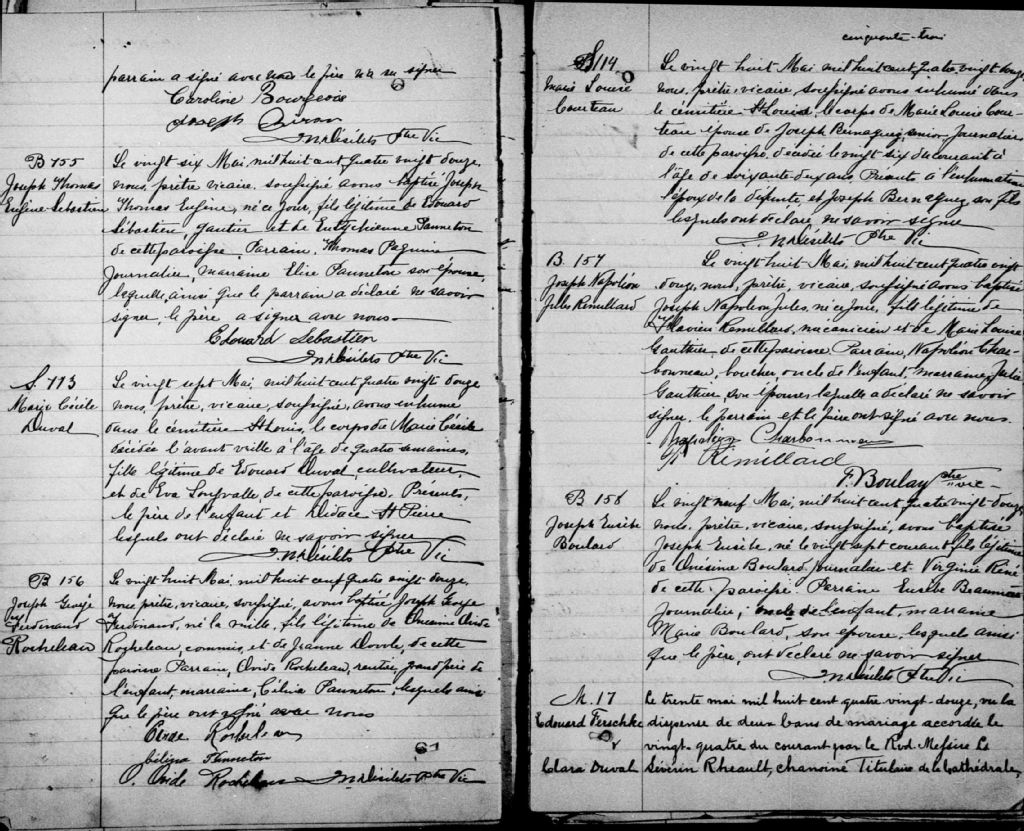 parrain a signé avec nous le père n'a su signer
Caroline Bourgeois
Joseph
Ptre Vic
B 155
Joseph Thomas
Eugène Sebastien
Le vingt six Mai, mil huit cent quatre vingt douze,
nous, prêtre vicaire, soussigné avons baptisé Joseph
Thomas Eugène, né ce jour, fils légitime de Edouard
Sébastien, gautier et de Eutychienne Panneton
de cette paroisse. Parrain, Thomas Paquin
Journalier, marraine Elise Panneton son épouse,
laquelle ainsi que le parrain a déclaré ne savoir
signer, le père a signer avec nous.
Edouard Sebastien
Ptre Vic
S. 113
Marie Cécile
Duval
Le vingt sept Mai, mil huit cent quatre vingt douze
nous, prêtre, vicaire, soussigné, avons inhumé
dans le cémitière St Louis, le corps de Marie Cécile
décédée l'avant veille à l'âge de quatre semaines,
fille légitime de Edouard Duval, cultivateur,
et de Eva de cette paroisse. Présents,
le père de l'enfant et Didace St Pierre
lesquels ont déclaré ne savoir signer
Ptre Vic
B 156
Joseph George
Ferdinand
Rocheleau
Le vingt huit Mai, mil huit cent quatre vingt douze,
nous prêtre, vicaire, soussigné, avons baptisé Joseph George
Ferdinand, né la veille, fils légitime de Onésime Ovide
Rocheleau, commis, et de Jeanne de cette
paroisse Parrain, Ovide Rocheleau, rentier, grand père de
l'enfant, marraine, Célina Panneton, lesquels ainsi
que le père ont signé avec nous
Ovide Rocheleau
Célina Panneton
O. Ovide Rocheleau Ptre Vic
cinquante-trois
S 114
Marie Louise
Couteau
Le vingt huit Mai, mil huit cent quatre vingt douze,
nous, prêtre, vicaire, soussigné avons inhumé dans
le cémitière St Louis, le corps de Marie Louise Cou-
teau épouse de Joseph senior, Journalier
de cette paroisse, décédée le vingt six du courant à
l'âge de soixante-dix ans. Présents à l'inhumation
l'époux de la défunte, et Joseph son fils
lesquels ont déclaré ne savoir signer
Ptre Vic
B 157
Joseph Napoléon
Jules Remillard
Le vingt huit Mai, mil huit cent quatre vingt
douze, nous, prêtre, vicaire, soussigné avons baptisé
Joseph Napoléon Jules, né ce jour, fils légitime de
Flavien Remillard, mécanicien et de Marie Louise
Gauthier de cette paroisse. Parrain, Napoléon Char-
bonneau, boucher oncle de l'enfant, marraine, Julie
Gauthier, son épouse, laquelle a déclaré ne savoir
signer. le parrain et le père ont signé avec nous.
Napoléon Charbonneau
Rémillard
F. Boulay ptre vic
B 158
Joseph Eusèbe
Boulard
Le vingt neuf Mai, mil huit cent quatre vingt douze,
nous, prêtre, vicaire, soussigné, avons baptisé
Joseph Eusèbe, né le vingt sept courant, fils légitime
de Onésime Boulard, Journalier et Virginie Réné
de cette paroisse. Parrain Eusèbe
Journalier, oncle de l'enfant, marraine
Marie Boulard, son épouse, lesquels ainsi
que le père, ont déclaré ne savoir signer
Ptre Vic
M. 17
Edouard Ferschke
&
Clara Duval
Le trente mai mil huit cent quatre vingt-douze, vu la
dispense de deux bans de mariage accordée le
vingt-quatre du courant par le Rvd. Messire Ls
Séverin Rheault, chanoine Titulaire de la Cathédrale,